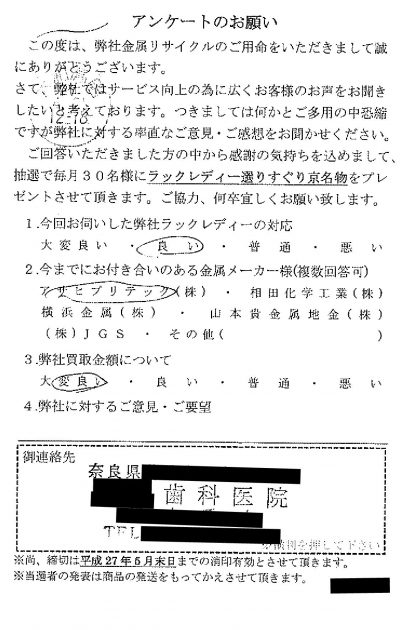 アンケートのお願い
この度は、弊社金属リサイクルのご用命をいただきまして誠
にありがとうございます。
さて、弊社ではサービス向上の為に広くお客様のお声をお聞き
したいと考えております。つきましては何かとご多用の中恐縮
ですが弊社に対する率直なご意見・ご感想をお聞かせください。
ご回答いただきました方の中から感謝の気持ちを込めまして、
抽選で毎月30名様にラックレディー選りすぐり京名物をプレ
ゼントさせて頂きます。ご協力、何卒宜しくお願い致します。
1.今回お伺いした弊社ラックレディーの対応
大変良い ・ 良い ・ 普通 ・ 悪い
2.今までにお付き合いのある金属メーカー様(複数回答可)
アサヒプリテック(株) ・ 相田化学工業(株)
横浜金属(株) ・ 山本貴金属地金(株)
(株)JGS ・ その他( )
3.弊社買取金額について
大変良い ・ 良い ・ 普通 ・ 悪い
4.弊社に対するご意見・ご要望
御連絡先
奈良県
歯科医院
TEL
※横判を押して下さい
※尚、締切は平成27年5月末日までの消印有効とさせて頂きます。
※当選者の発表は商品の発送をもってかえさせて頂きます。